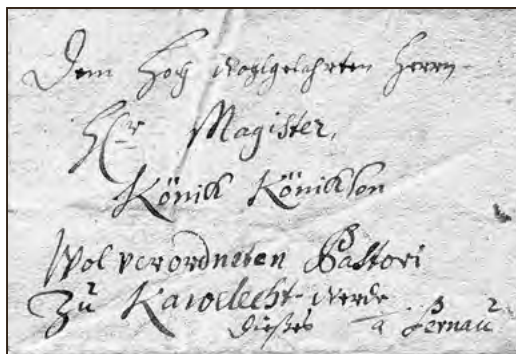 Dem Hoch wolgelahrten Herrn
Hr Magister,
Könick Könickson
Wol verordneten Pastori
Zu werde
dießes a Pernau